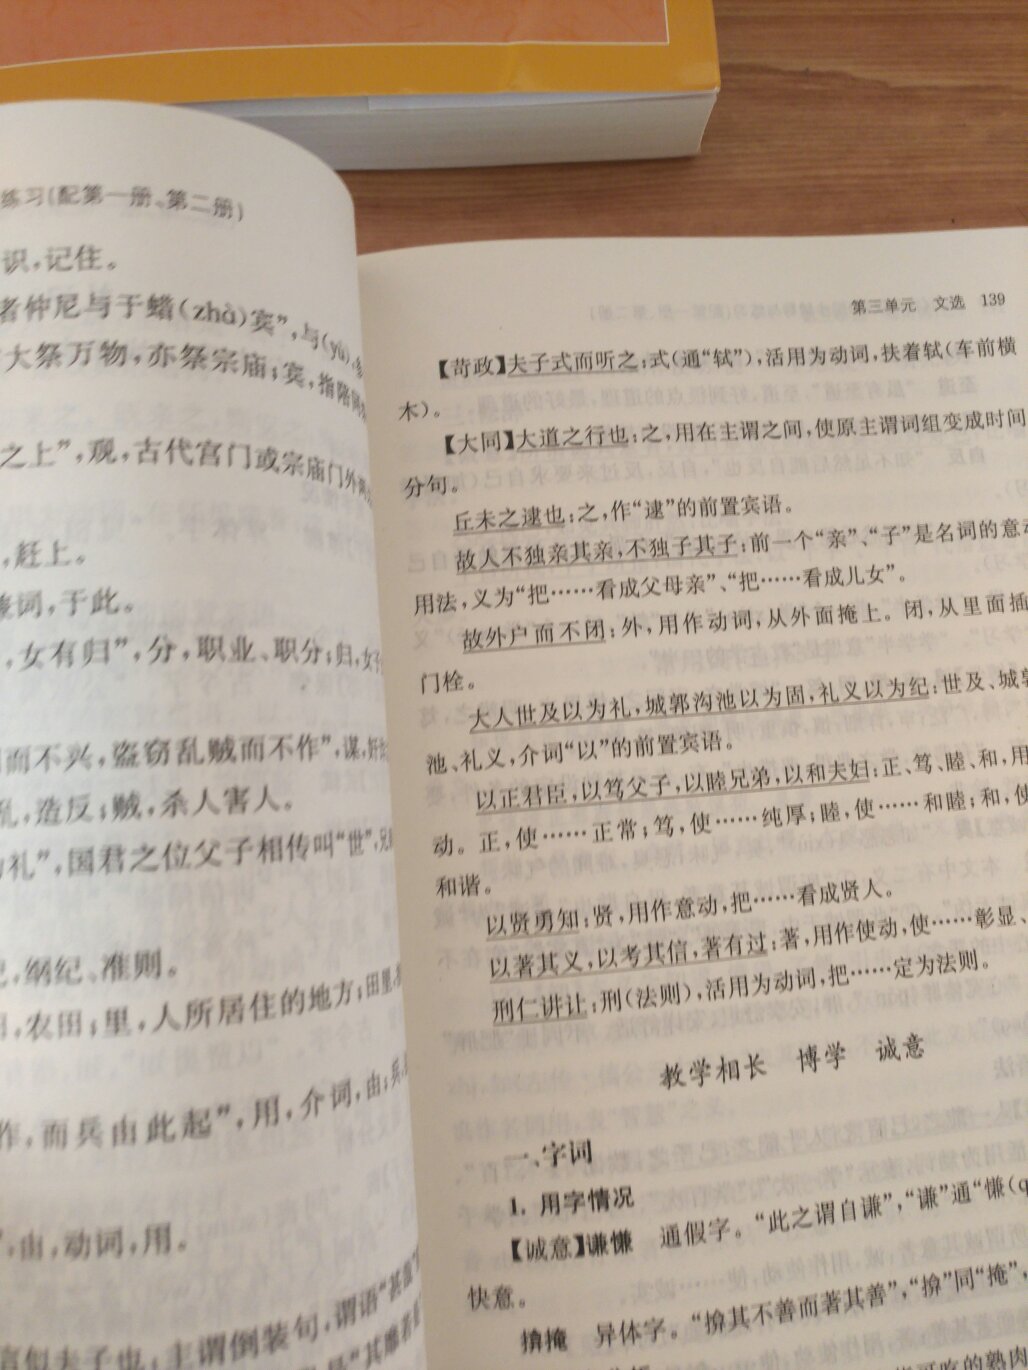 练习(配第一册、第二册)
识,记住。
者仲尼与于蜡(zhà)宾”,与(yù),
大祭万物,亦祭宗庙;宾,指陪
之上”,观,古代宫门或宗庙门外
,赶上。
词,于此。
,女有归”,分,职业、职分;归,
而不兴,盗窃乱贼而不作”,谋,
乱,造反;贼,杀人害人。
礼”,国君之位父子相传叫“世”,
纪,纲纪、准则。
田,农田;里,人所居住的地方;田里,
作,而兵由此起”,用,介词,由;兵,
,由,动词,用。
言似夫子也,主谓倒装句,谓语“甚
第三单元 文选 139
【苛政】夫子式而听之:式(通“轼”),活用为动词,扶着轼(车前横
木)。
【大同】大道之行也:之,用在主谓之间,使原主谓词组变成时间
分句。
丘未之逮也:之,作“逮”的前置宾语。
故人不独亲其亲,不独子其子:前一个“亲”、“子”是名词的意动
用法,义为“把……看成父母亲”、“把……看成儿女”。
故外户而不闭:外,用作动词,从外面掩上。闭,从里面插
门栓。
大人世及以为礼,城郭沟池以为固,礼义以为纪:世及、城郭
池、礼义,介词“以”的前置宾语。
以正君臣,以笃父子,以睦兄弟,以和夫妇:正、笃、睦、和,用
动。正,使……正常;笃,使……纯厚;睦,使……和睦;和,使
和谐。
以贤勇知:贤,用作意动,把……看成贤人。
以著其义,以考其信,著有过:著,用作使动,使……彰显、
刑仁讲让:刑(法则),活用为动词,把……定为法则。
教学相长 博学 诚意
一、字词
1. 用字情况
【诚意】谦慊 通假字。“此之谓自谦”,“谦”通“慊(q
快意。
揜掩 异体字。“揜其不善而著其善”,“揜”同“掩”,
的熟肉